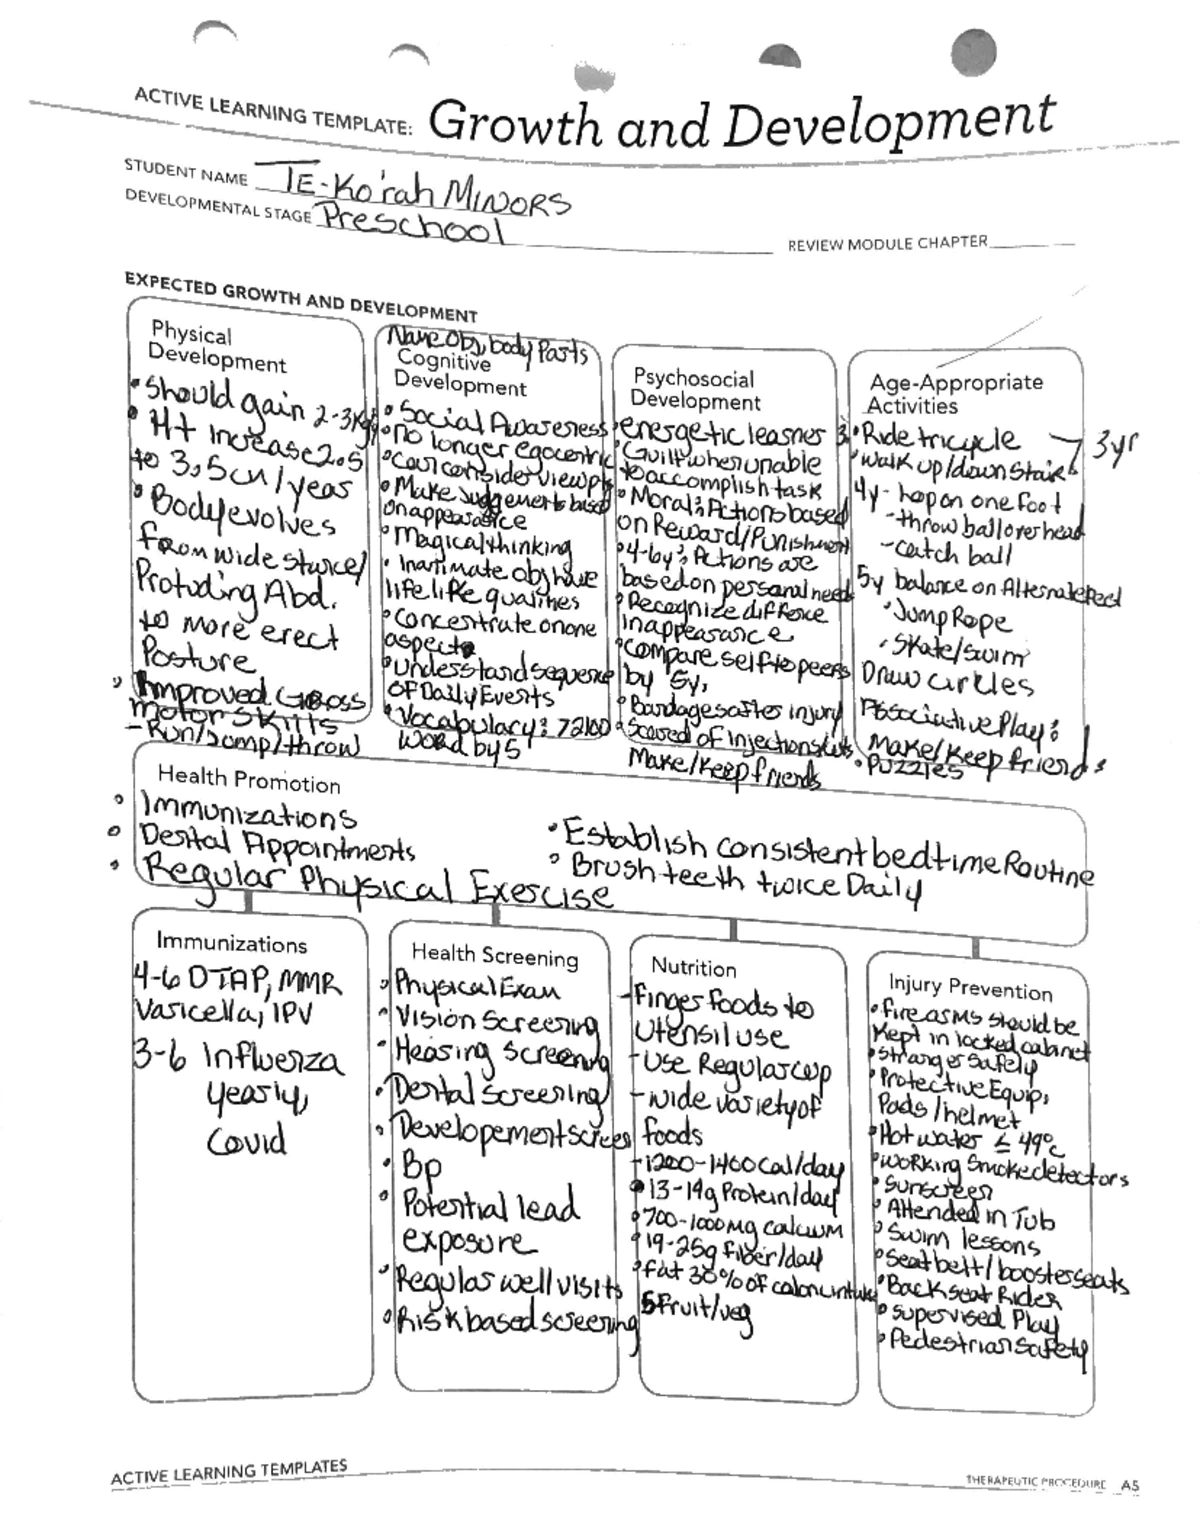 ACTIVE LEARNING TEMPLATE: Growth and Development
STUDENT NAME TE-Ko'rah MINORS
DEVELOPMENTAL STAGE Preschool
REVIEW MODULE CHAPTER
EXPECTED GROWTH AND DEVELOPMENT
Physical
Development
• Should gain 2-3Kg/
• Ht Increase 2.5
to 3.5cm/year
• Body evolves
from wide stance/
Protuding Abd.
to more erect
Posture
• Improved Gross
motor skills
- Run/Jump/throw
Name Obj, body Parts
Cognitive
Development
• Social Awareness
• no longer egocentric
• Can consider viewpts
• Make Judgements based
on appearance
• Magical thinking
• Inanimate obj have
life like qualities
• Concentrate on one
aspect
• Understand sequence
of Daily Events
• Vocabulary: 72100
word by 5
Psychosocial
Development
• energetic learner
• Guilt when unable
to accomplish task
• Moral: Actions based
on Reward/Punishment
• 4-6y: Actions are
based on personal need
• Recognize differece
in appearance
• Compare self to peers
by 5y,
• Bandages after injury
• Scared of Injections
Make/Keep friends
Age-Appropriate
Activities
• Ride tricycle
3yr
• walk up/down stairs
4y - hop on one foot
- throw ball overhead
- catch ball
5y balance on Alternate feet
• Jump Rope
• Skate/swim
Draw circles
Associative Play:
Make/Keep friends
• Puzzles
Health Promotion
• Immunizations
• Dental Appointments
• Regular Physical Exercise
• Establish consistent bedtime Routine
• Brush teeth twice Daily
Immunizations
4-6 DTAP, MMR
Varicella, IPV
3-6 Influenza
yearly,
Covid
Health Screening
• Physical Exam
• Vision Screening
• Hearing Screening
• Dental Screening
• Developement screen
• Bp
• Potential lead
exposure
• Regular well visits
• Risk based screening
Nutrition
- Finger foods to
Utensil use
- Use Regular cup
- wide variety of
foods
- 1200-1400 cal/day
• 13-19g Protein/day
• 700-1000mg calcium
• 19-25g fiber/day
• fat 30% of caloric intake
5 fruit/veg
Injury Prevention
• firearms should be
Kept in locked cabinet
• Stranger Safety
• Protective Equip,
Pads/helmet
• Hot water ≤ 49°c
• working smoke detectors
• Sunscreen
• Attended in Tub
• Swim lessons
• Seatbelt/booster seats
• Back seat Rider
• supervised Play
• Pedestrian safety
ACTIVE LEARNING TEMPLATES
THERAPEUTIC PROCEDURE A5